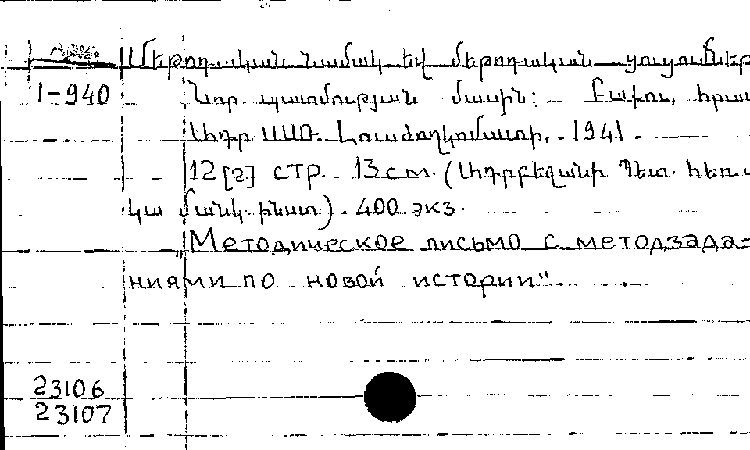 Մեթոդական նամակ եվ մեթոդական ցուցումներ
1-940 Նոր պատմության մասին: Բաքու, հրատ
Ադր ՍՍՌ Լուսժողկոմատի, 1941.
12 [2] стр. 13 см. (Ադրբեջանի Պետ. հեռ.
կա մանկ. ինստ). 400 экз.
Методическое письмо с методзада=
ниями по новой истории".
23106
23107